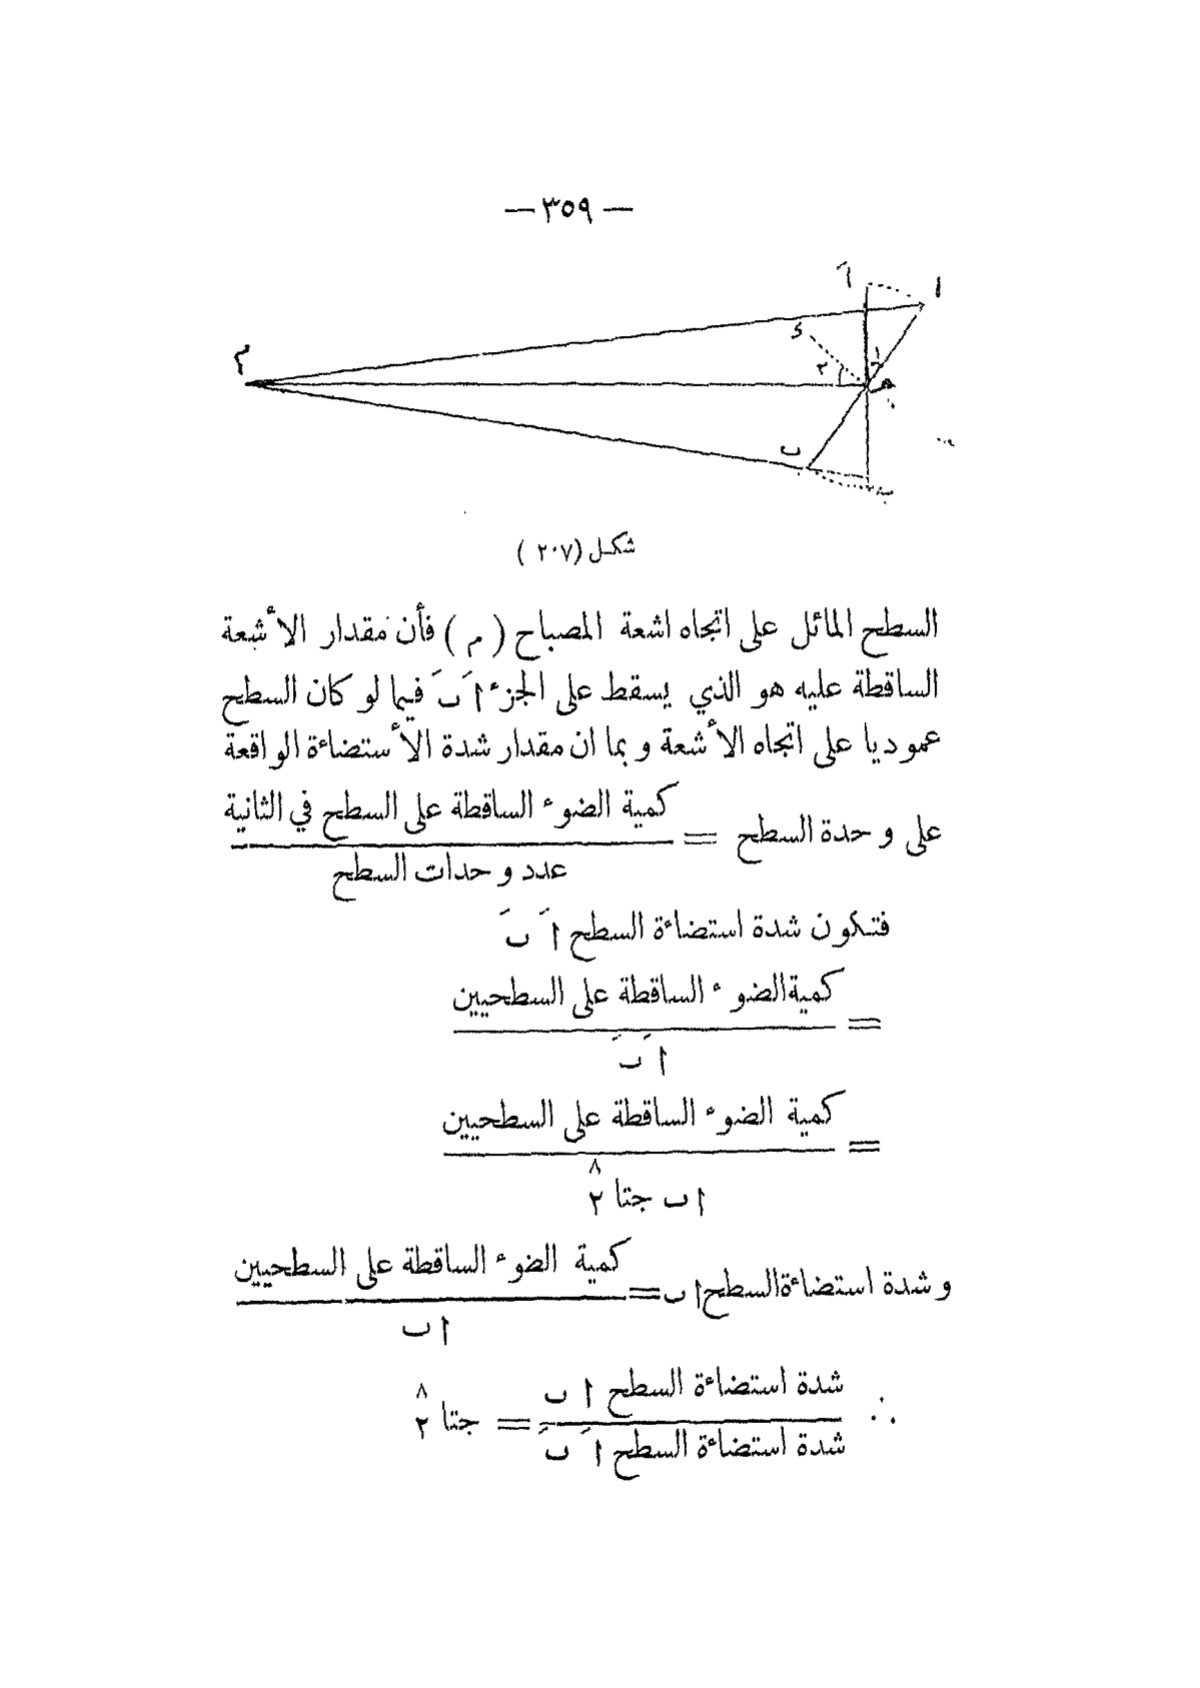 — ٣٥٩ —
أَ
ا
م
ء
٢
١
ب
شكل (٢٠٧)
السطح المائل على اتجاه اشعة المصباح (م) فأن مقدار الأشعة
الساقطة عليه هو الذي يسقط على الجزء اَ بَ فيما لو كان السطح
عموديا على اتجاه الأشعة وبما ان مقدار شدة الأستضاءة الواقعة
على وحدة السطح = كمية الضوء الساقطة على السطح في الثانية
عدد وحدات السطح
فتكون شدة استضاءة السطح اَ بَ
= كمية الضوء الساقطة على السطحيين
اَ بَ
= كمية الضوء الساقطة على السطحيين
ا ب جتا ٢^
وشدة استضاءة السطح ا ب = كمية الضوء الساقطة على السطحيين
ا ب
∴ شدة استضاءة السطح ا ب = جتا ٢^
شدة استضاءة السطح اَ بَ